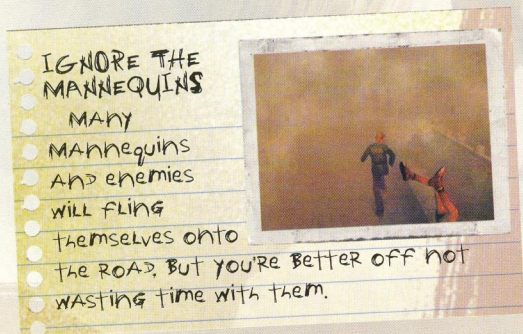 IGNORE THE
MANNEQUINS
MANY
MANNEQUINS
AND ENEMIES
WILL FLING
THEMSELVES ONTO
THE ROAD, BUT YOU'RE BETTER OFF NOT
WASTING TIME WITH THEM.